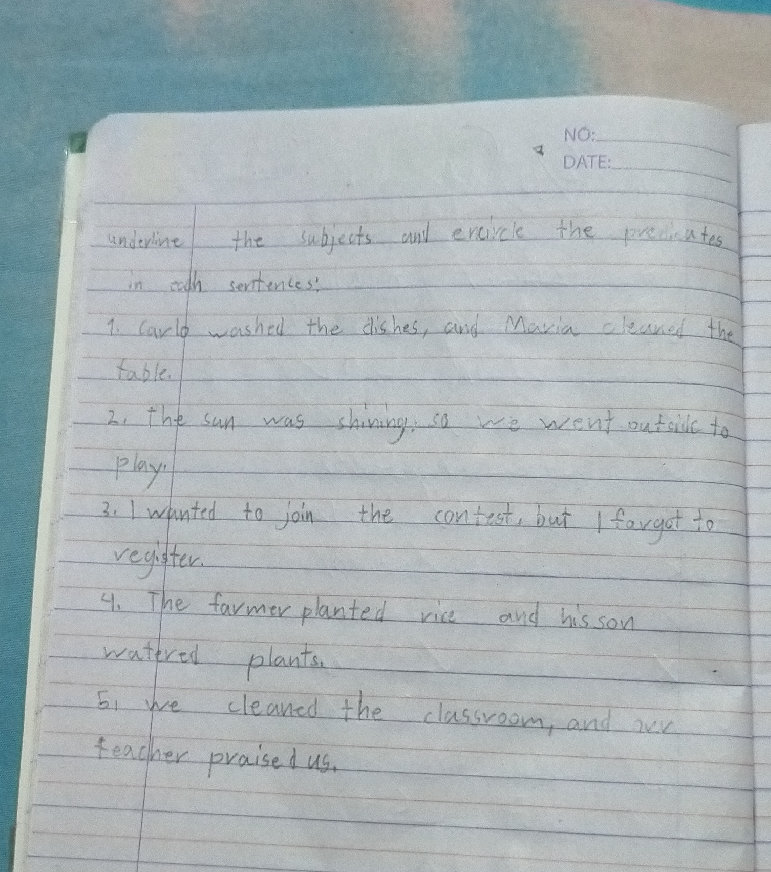 NO:
DATE:
underline the subjects and encircle the predicates
in each sentences:
1. Carlo washed the dishes, and Maria cleaned the
table.
2. The sun was shining, so we went outside to
play.
3. I wanted to join the contest, but I forgot to
register.
4. The farmer planted rice and his son
watered plants.
5. We cleaned the classroom, and our
teacher praised us.